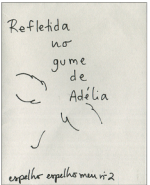 Refletida
no
gume
de
Adélia
espelho espelho meu nº 2